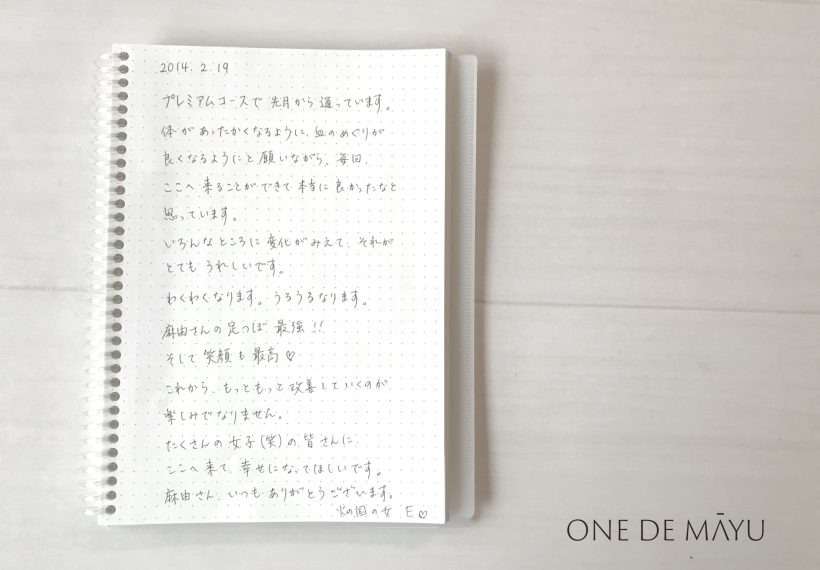 2014. 2. 19
プレミアムコースで 先月から 通っています。
体が あったかくなるように、血のめぐりが
良くなるようにと 願いながら、毎日、
ここへ 来ることができて 本当に 良かったなと
思っています。
いろんなところに 変化がみえて、それが
とても うれしいです。
わくわくなります。うるうるなります。
麻由さんの 足つぼ 最強!!
そして 笑顔も 最高♡
これから、もっともっと 改善していくのが
楽しみでなりません。
たくさんの 女子(笑)の 皆さんに
ここへ 来て、幸せになってほしいです。
麻由さん、いつも ありがとうございます。
火の国の女 E♡
ONE DE MĀYU